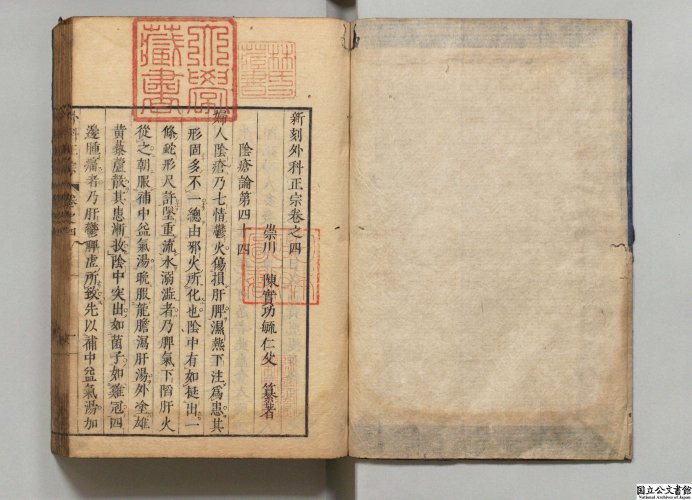 新刻外科正宗卷之四
崇川 陳實功毓仁父 纂著
陰瘡論第四十四
婦人陰瘡乃七情鬱火傷損肝脾濕熱下注為患其
形固多不一總由邪火所化也陰中有如挺出一
條蛇形尺許墜重流水溺澁者乃脾氣下陷肝火
從之朝服補中益氣湯晩服龍膽瀉肝湯外塗雄
黄藜蘆散其患漸收陰中突出如菌子如雞冠四
邊腫痛者乃肝鬱脾虚所致先以補中益氣湯加
外科正宗 卷之四
大學
藏書
林氏
藏書
国立公文書館
National Archives of Japan